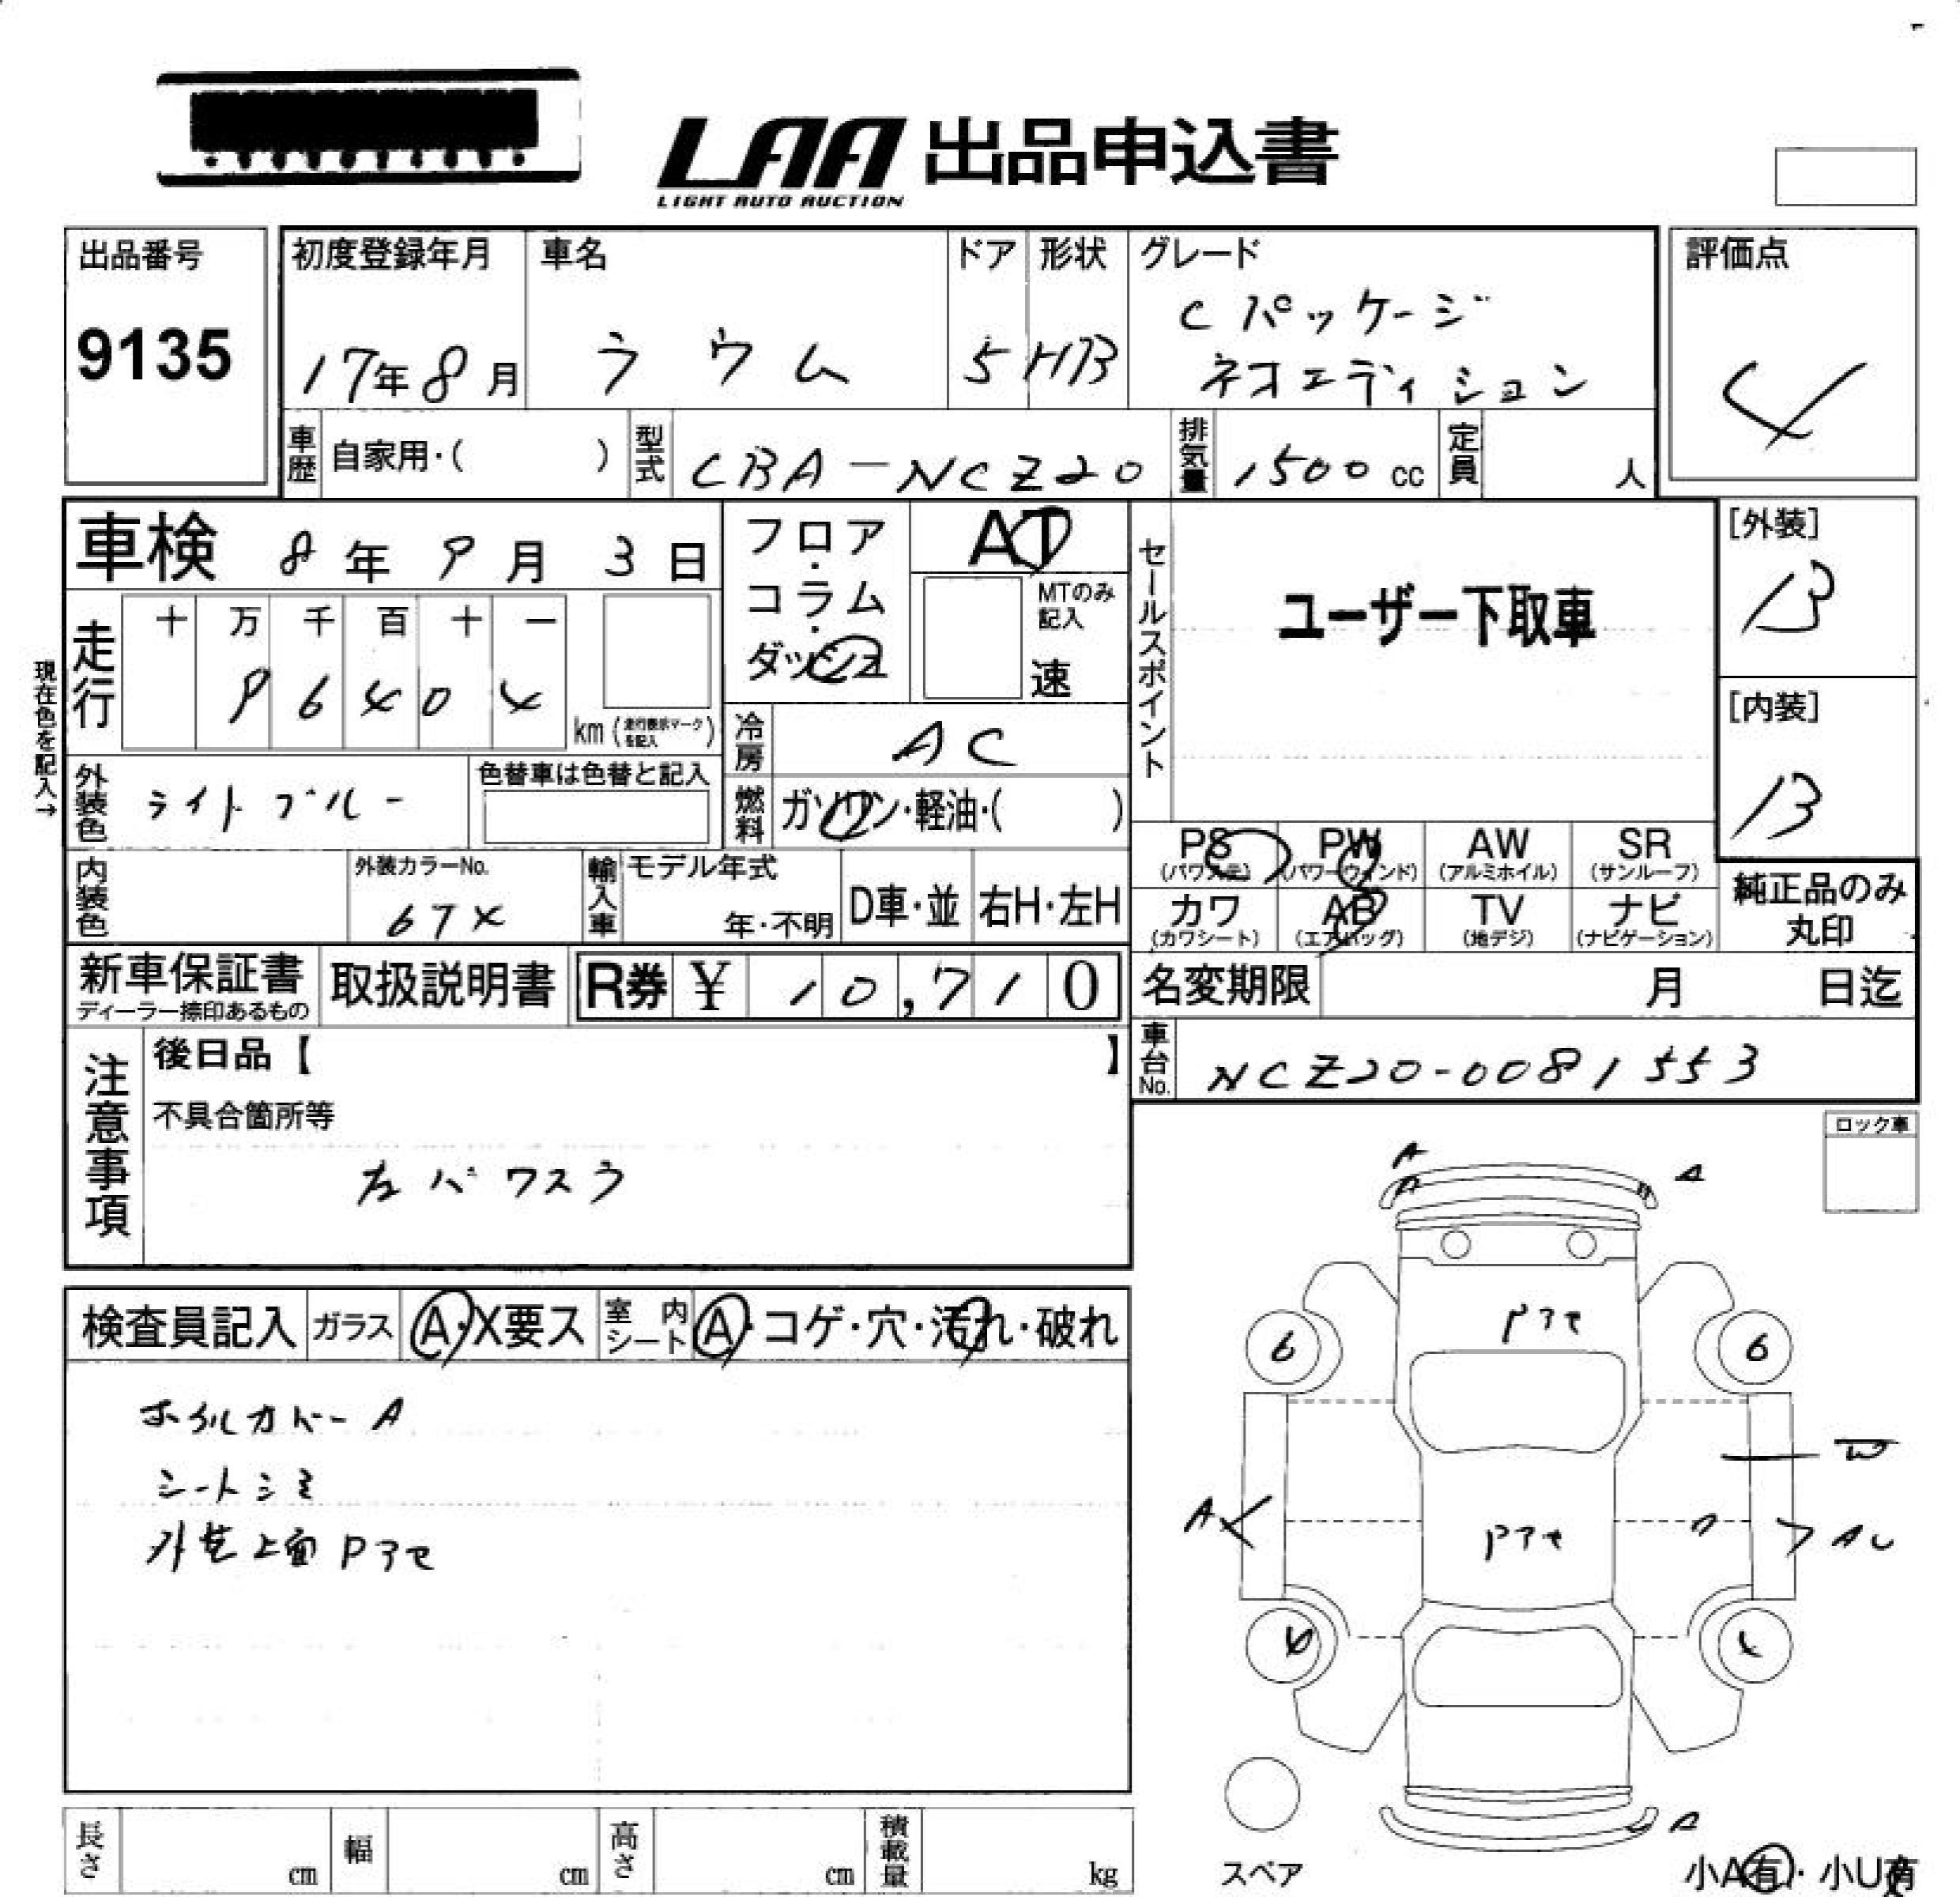 LAA 出品申込書
LIGHT AUTO AUCTION
出品番号
9135
初度登録年月
17年8月
車名
ラウム
ドア
5
形状
HB
グレード
Cパッケージ
ネオエディション
評価点
4
車歴
自家用・( )
型式
CBA-NCZ20
排気量
1500 cc
定員
人
車検 8年9月3日
フロア・コラム・ダッシュ
AT
MTのみ記入
速
セールスポイント
ユーザー下取車
[外装]
B
[内装]
B
現在色を記入→
走行
十 万 千 百 十 一
9 6 4 0 4
km (走行表示マークを記入)
冷房
AC
外装色
ライトブルー
色替車は色替と記入
燃料
ガソリン・軽油・( )
PS (パワステ)
PW (パワーウインド)
AW (アルミホイル)
SR (サンルーフ)
カワ (カワシート)
AB (エアバッグ)
TV (地デジ)
ナビ (ナビゲーション)
純正品のみ丸印
内装色
外装カラーNo.
輸入車
モデル年式
年・不明
D車・並
右H・左H
新車保証書
ディーラー捺印あるもの
取扱説明書
R券 ¥ 10,710
名変期限
月 日迄
車台No.
NCZ20-0081553
注意事項
後日品【 】
不具合箇所等
ロック車
検査員記入
ガラス
A・X要ス
室内シート
A・コゲ・穴・汚れ・破れ
ホイルカバーA
シートシミ
外装上面Pアセ
A
A
A
Pアセ
6
6
W
A
Pアセ
AU
4
A
スペア
小A有・小U有
長さ
cm
幅
cm
高さ
cm
積載量
kg